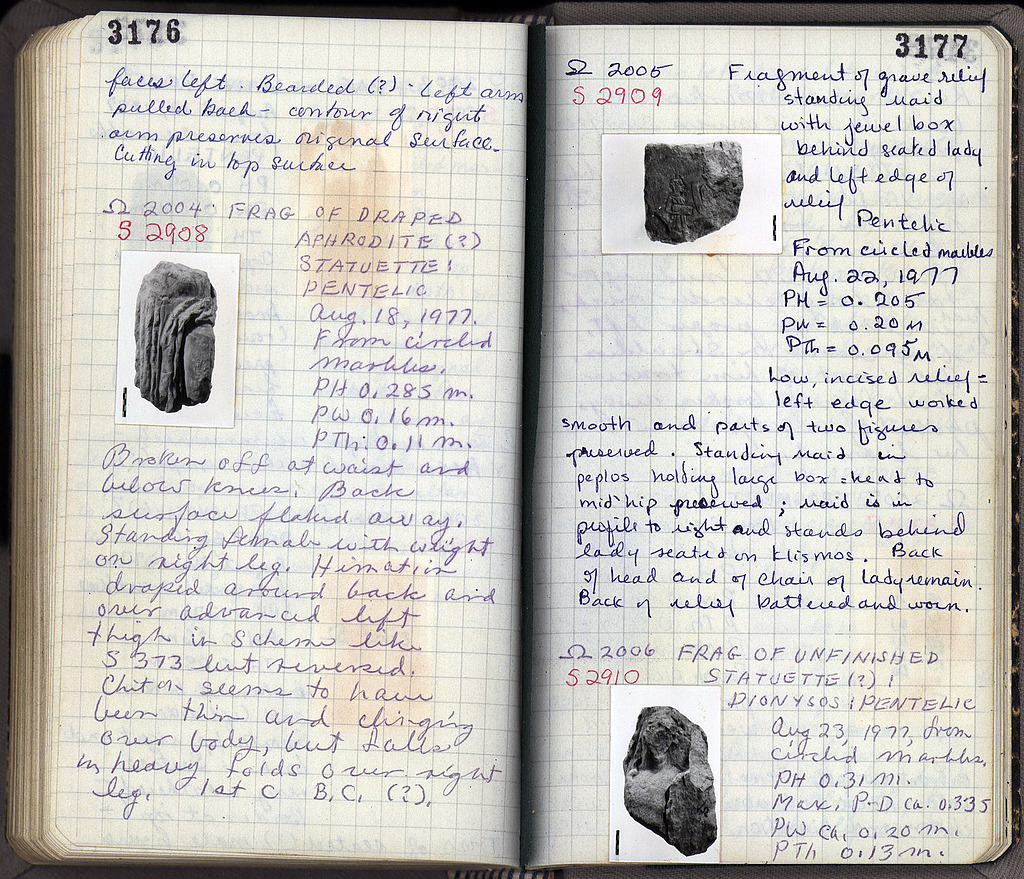 3176
faces left. Bearded (?). Left arm
pulled back - contour of right
arm preserves original surface.
Cutting in top surface
Ω 2004 FRAG OF DRAPED
S 2908 APHRODITE (?)
STATUETTE:
PENTELIC
Aug. 18, 1977.
From circled
marbles.
PH 0.285 m.
PW 0.16 m.
PTh: 0.11 m.
Broken off at waist and
below knees. Back
surface flaked away.
Standing female with weight
on right leg. Himation
draped around back and
over advanced left
thigh in scheme like
S 373 but reversed.
Chiton seems to have
been thin and clinging
over body, but falls
in heavy folds over right
leg. 1st C B.C. (?).
3177
Ω 2005 Fragment of grave relief
S 2909 standing maid
with jewel box
behind seated lady
and left edge of
relief
Pentelic
From circled marbles
Aug. 22, 1977
PH = 0.205
PW = 0.20 M
PTh = 0.095 M
Low, incised relief =
left edge worked
smooth and parts of two figures
preserved. Standing maid in
peplos holding large box = head to
mid hip preserved; maid is in
profile to right and stands behind
lady seated on klismos. Back
of head and of chair of lady remain.
Back of relief battered and worn.
Ω 2006 FRAG OF UNFINISHED
S 2910 STATUETTE (?):
DIONYSOS: PENTELIC
Aug 23, 1977, from
circled marbles.
PH 0.31 m.
Max. P.D ca. 0.335
PW ca. 0.20 m.
PTh 0.13 m.